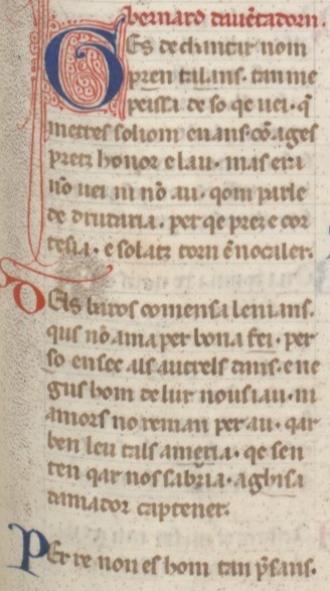 bernard dauẽtadorn.
GEs de chantar nom
pren talans. tan me
peissa de so qe uei. q̃
metres soliom en ans cõ ages
pretz honor e lau. mas era
nõ uei ni nõ au. qom parle
de drudaria. per qe prez e cor
tesia. e solatz torn ẽ nocaler.
DEls baros comensa lenians.
qus nõ ama per bona fei. per
so en sec als autrels dans. e ne
gus hom de lur nous iau. ni
amors no reman per au. qar
ben leu tals ameria. qe sen
ten qar nos sabria. a ghisa
damador captener.
PEr re non es hom tan p̃sans.